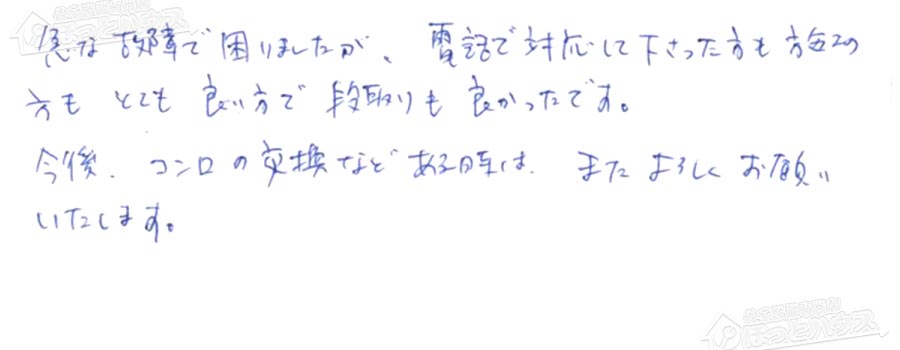 急な故障で困りましたが、電話で対応して下さった方も施工の
方も とても 良い方で 段取りも 良かったです。
今後、コンロの交換などある時は、またよろしくお願い
いたします。
ほっとハウス